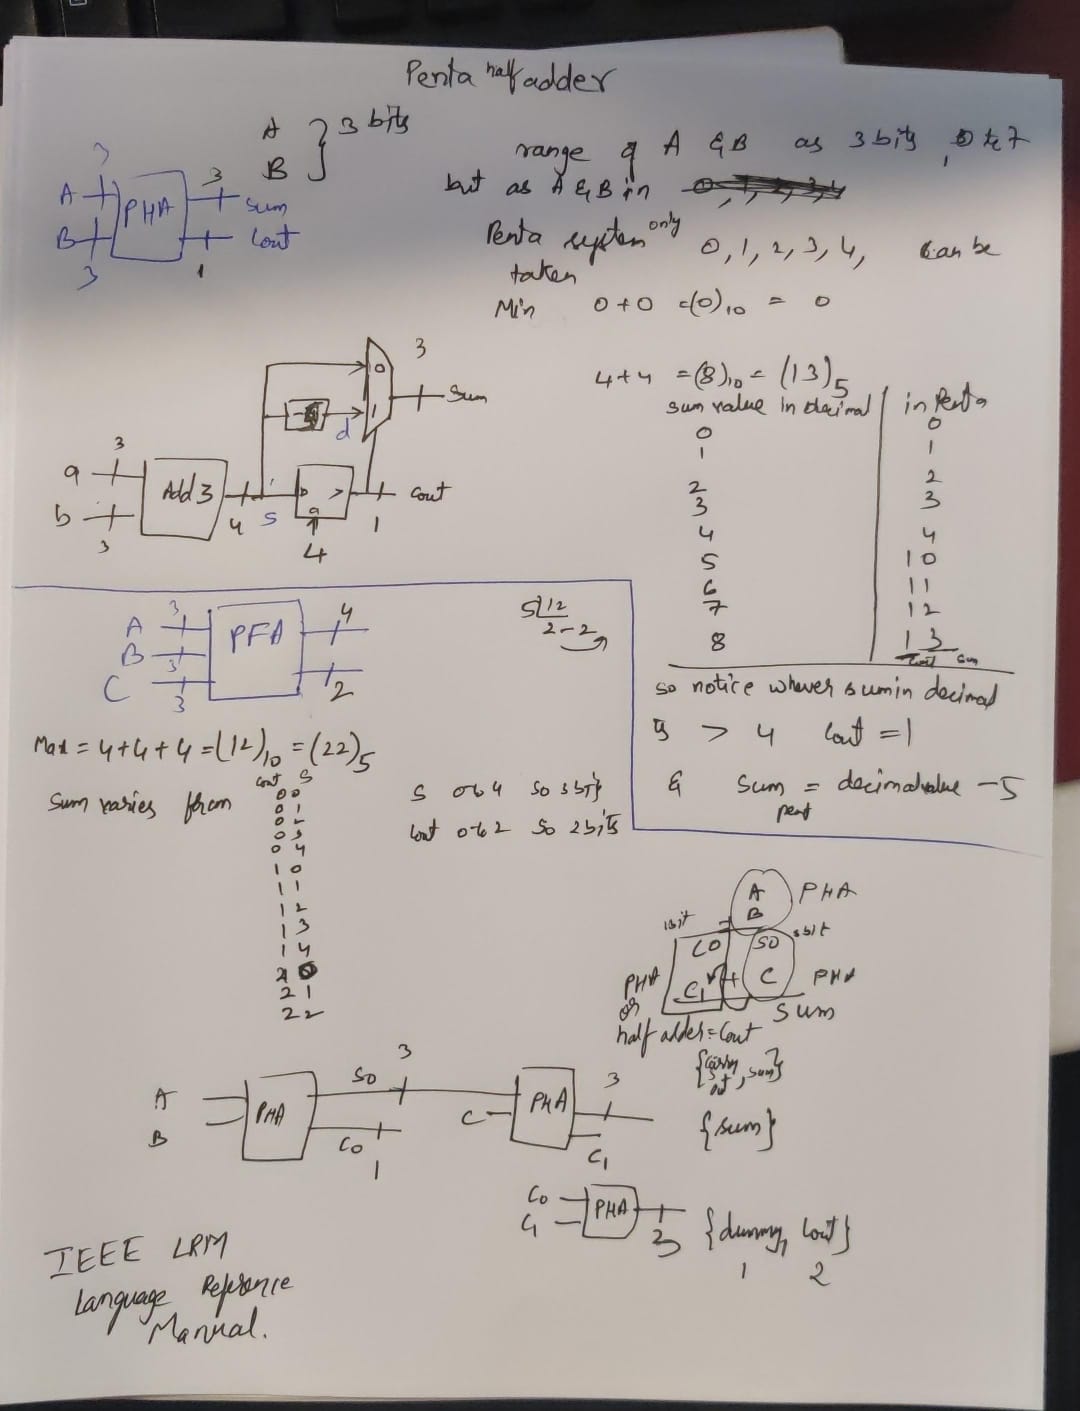 Penta half adder
A } 3 bits
B
3
A
B
3
PHA
3
Sum
Cout
1
range of A & B as 3 bits, 0 to 7
but as A & B in
Penta system only 0, 1, 2, 3, 4, can be
taken
Min 0 + 0 = (0)10 = 0
4+4 = (8)10 = (13)5
sum value in decimal | in Penta
0 0
1 1
2 2
3 3
4 4
5 10
6 11
7 12
8 13
cout sum
so notice whever sum in decimal
is > 4 Cout = 1
& sum = decimal value - 5
pent
3
0
Sum
1
d
3
a
Add 3
b
3
4
s
> 
4
Cout
1
A 3
B 3
C 3
PFA
4
2
5|12
2-2
Max = 4+4+4 = (12)10 = (22)5
Sum varies from
cout s
0 0
0 1
0 2
0 3
0 4
1 0
1 1
1 2
1 3
1 4
2 0
2 1
2 2
S 0 to 4 so 3 bits
Cout 0 to 2 so 2 bits
A PHA
B
1bit
C0 S0 3bit
PHA C1 + C PHA
or
half adder = Cout
Sum
{carry out, sum}
A
B
PHA
S0 3
C0
1
C
PHA
3
C1
{sum}
C0
C1
PHA
3
{dummy, Cout}
1 2
IEEE LRM
Language Reference
Manual.